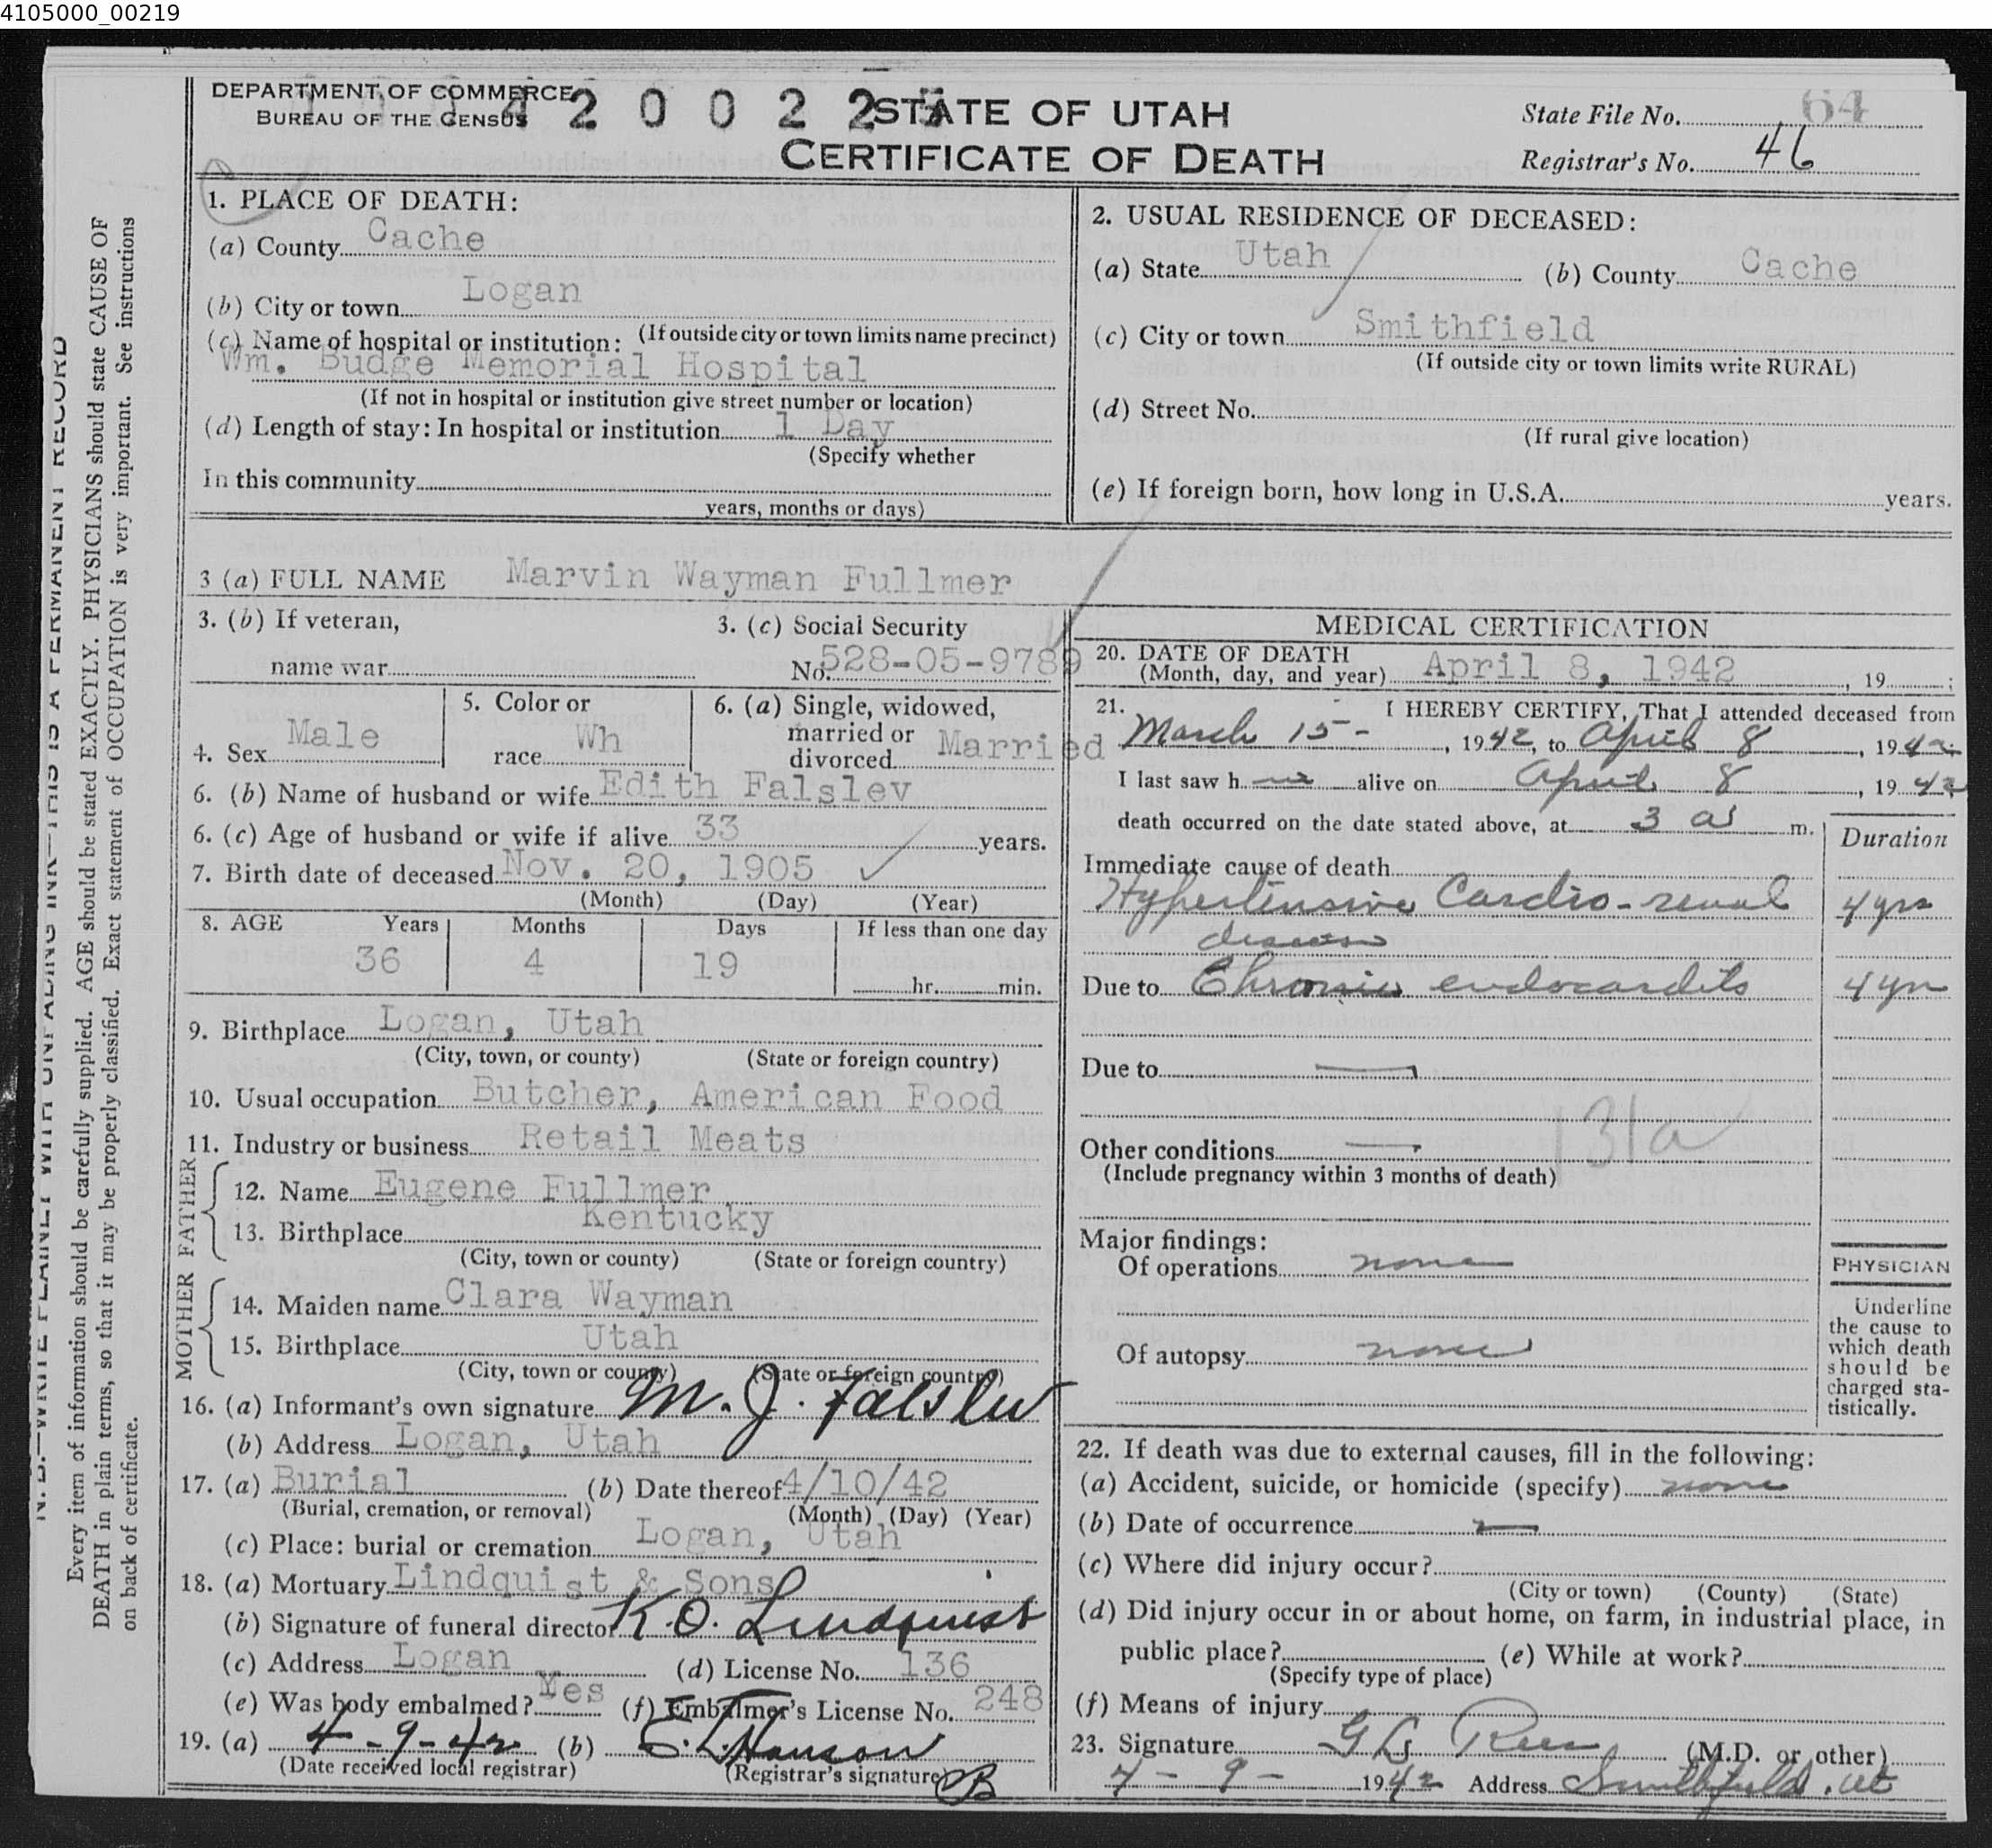 4105000_00219
DEPARTMENT OF COMMERCE
BUREAU OF THE CENSUS
STATE OF UTAH
CERTIFICATE OF DEATH
State File No. 64
Registrar's No. 46
1. PLACE OF DEATH:
(a) County Cache
(b) City or town Logan
(If outside city or town limits name precinct)
(c) Name of hospital or institution:
Wm. Budge Memorial Hospital
(If not in hospital or institution give street number or location)
(d) Length of stay: In hospital or institution 1 Day
(Specify whether
In this community
years, months or days)
2. USUAL RESIDENCE OF DECEASED:
(a) State Utah (b) County Cache
(c) City or town Smithfield
(If outside city or town limits write RURAL)
(d) Street No.
(If rural give location)
(e) If foreign born, how long in U.S.A. years.
3 (a) FULL NAME Marvin Wayman Fullmer
3. (b) If veteran,
name war
3. (c) Social Security
No. 528-05-9789
4. Sex Male
5. Color or
race Wh
6. (a) Single, widowed,
married or
divorced Married
6. (b) Name of husband or wife Edith Falslev
6. (c) Age of husband or wife if alive 33 years.
7. Birth date of deceased Nov. 20, 1905
(Month) (Day) (Year)
8. AGE Years Months Days If less than one day
36 4 19 hr. min.
9. Birthplace Logan, Utah
(City, town, or county) (State or foreign country)
10. Usual occupation Butcher, American Food
11. Industry or business Retail Meats
FATHER
12. Name Eugene Fullmer
13. Birthplace Kentucky
(City, town or county) (State or foreign country)
MOTHER
14. Maiden name Clara Wayman
15. Birthplace Utah
(City, town or county) (State or foreign country)
16. (a) Informant's own signature M. J. Falslev
(b) Address Logan, Utah
17. (a) Burial (b) Date thereof 4/10/42
(Burial, cremation, or removal) (Month) (Day) (Year)
(c) Place: burial or cremation Logan, Utah
18. (a) Mortuary Lindquist & Sons
(b) Signature of funeral director K. O. Lindquist
(c) Address Logan (d) License No. 136
(e) Was body embalmed? Yes (f) Embalmer's License No. 248
19. (a) 4-9-42 (b) Hanson
(Date received local registrar) (Registrar's signature)
MEDICAL CERTIFICATION
20. DATE OF DEATH
(Month, day, and year) April 8, 1942, 19 ;
21. I HEREBY CERTIFY, That I attended deceased from
March 15 - , 1942, to April 8, 1942
I last saw h im alive on April 8, 1942
death occurred on the date stated above, at 3 a m.
Duration
Immediate cause of death
Hypertensive Cardio-renal 4 yrs
disease
Due to Chronic endocarditis 4 yrs
Due to —
131a
Other conditions —
(Include pregnancy within 3 months of death)
Major findings:
Of operations none
Of autopsy none
PHYSICIAN
Underline
the cause to
which death
should be
charged sta-
tistically.
22. If death was due to external causes, fill in the following:
(a) Accident, suicide, or homicide (specify) none
(b) Date of occurrence —
(c) Where did injury occur?
(City or town) (County) (State)
(d) Did injury occur in or about home, on farm, in industrial place, in
public place? (e) While at work?
(Specify type of place)
(f) Means of injury
23. Signature G L Rees (M.D. or other)
4-9-1942 Address Smithfield, Ut
N. B.—WRITE PLAINLY WITH UNFADING INK—THIS IS A PERMANENT RECORD
Every item of information should be carefully supplied. AGE should be stated EXACTLY. PHYSICIANS should state CAUSE OF
DEATH in plain terms, so that it may be properly classified. Exact statement of OCCUPATION is very important. See instructions
on back of certificate.